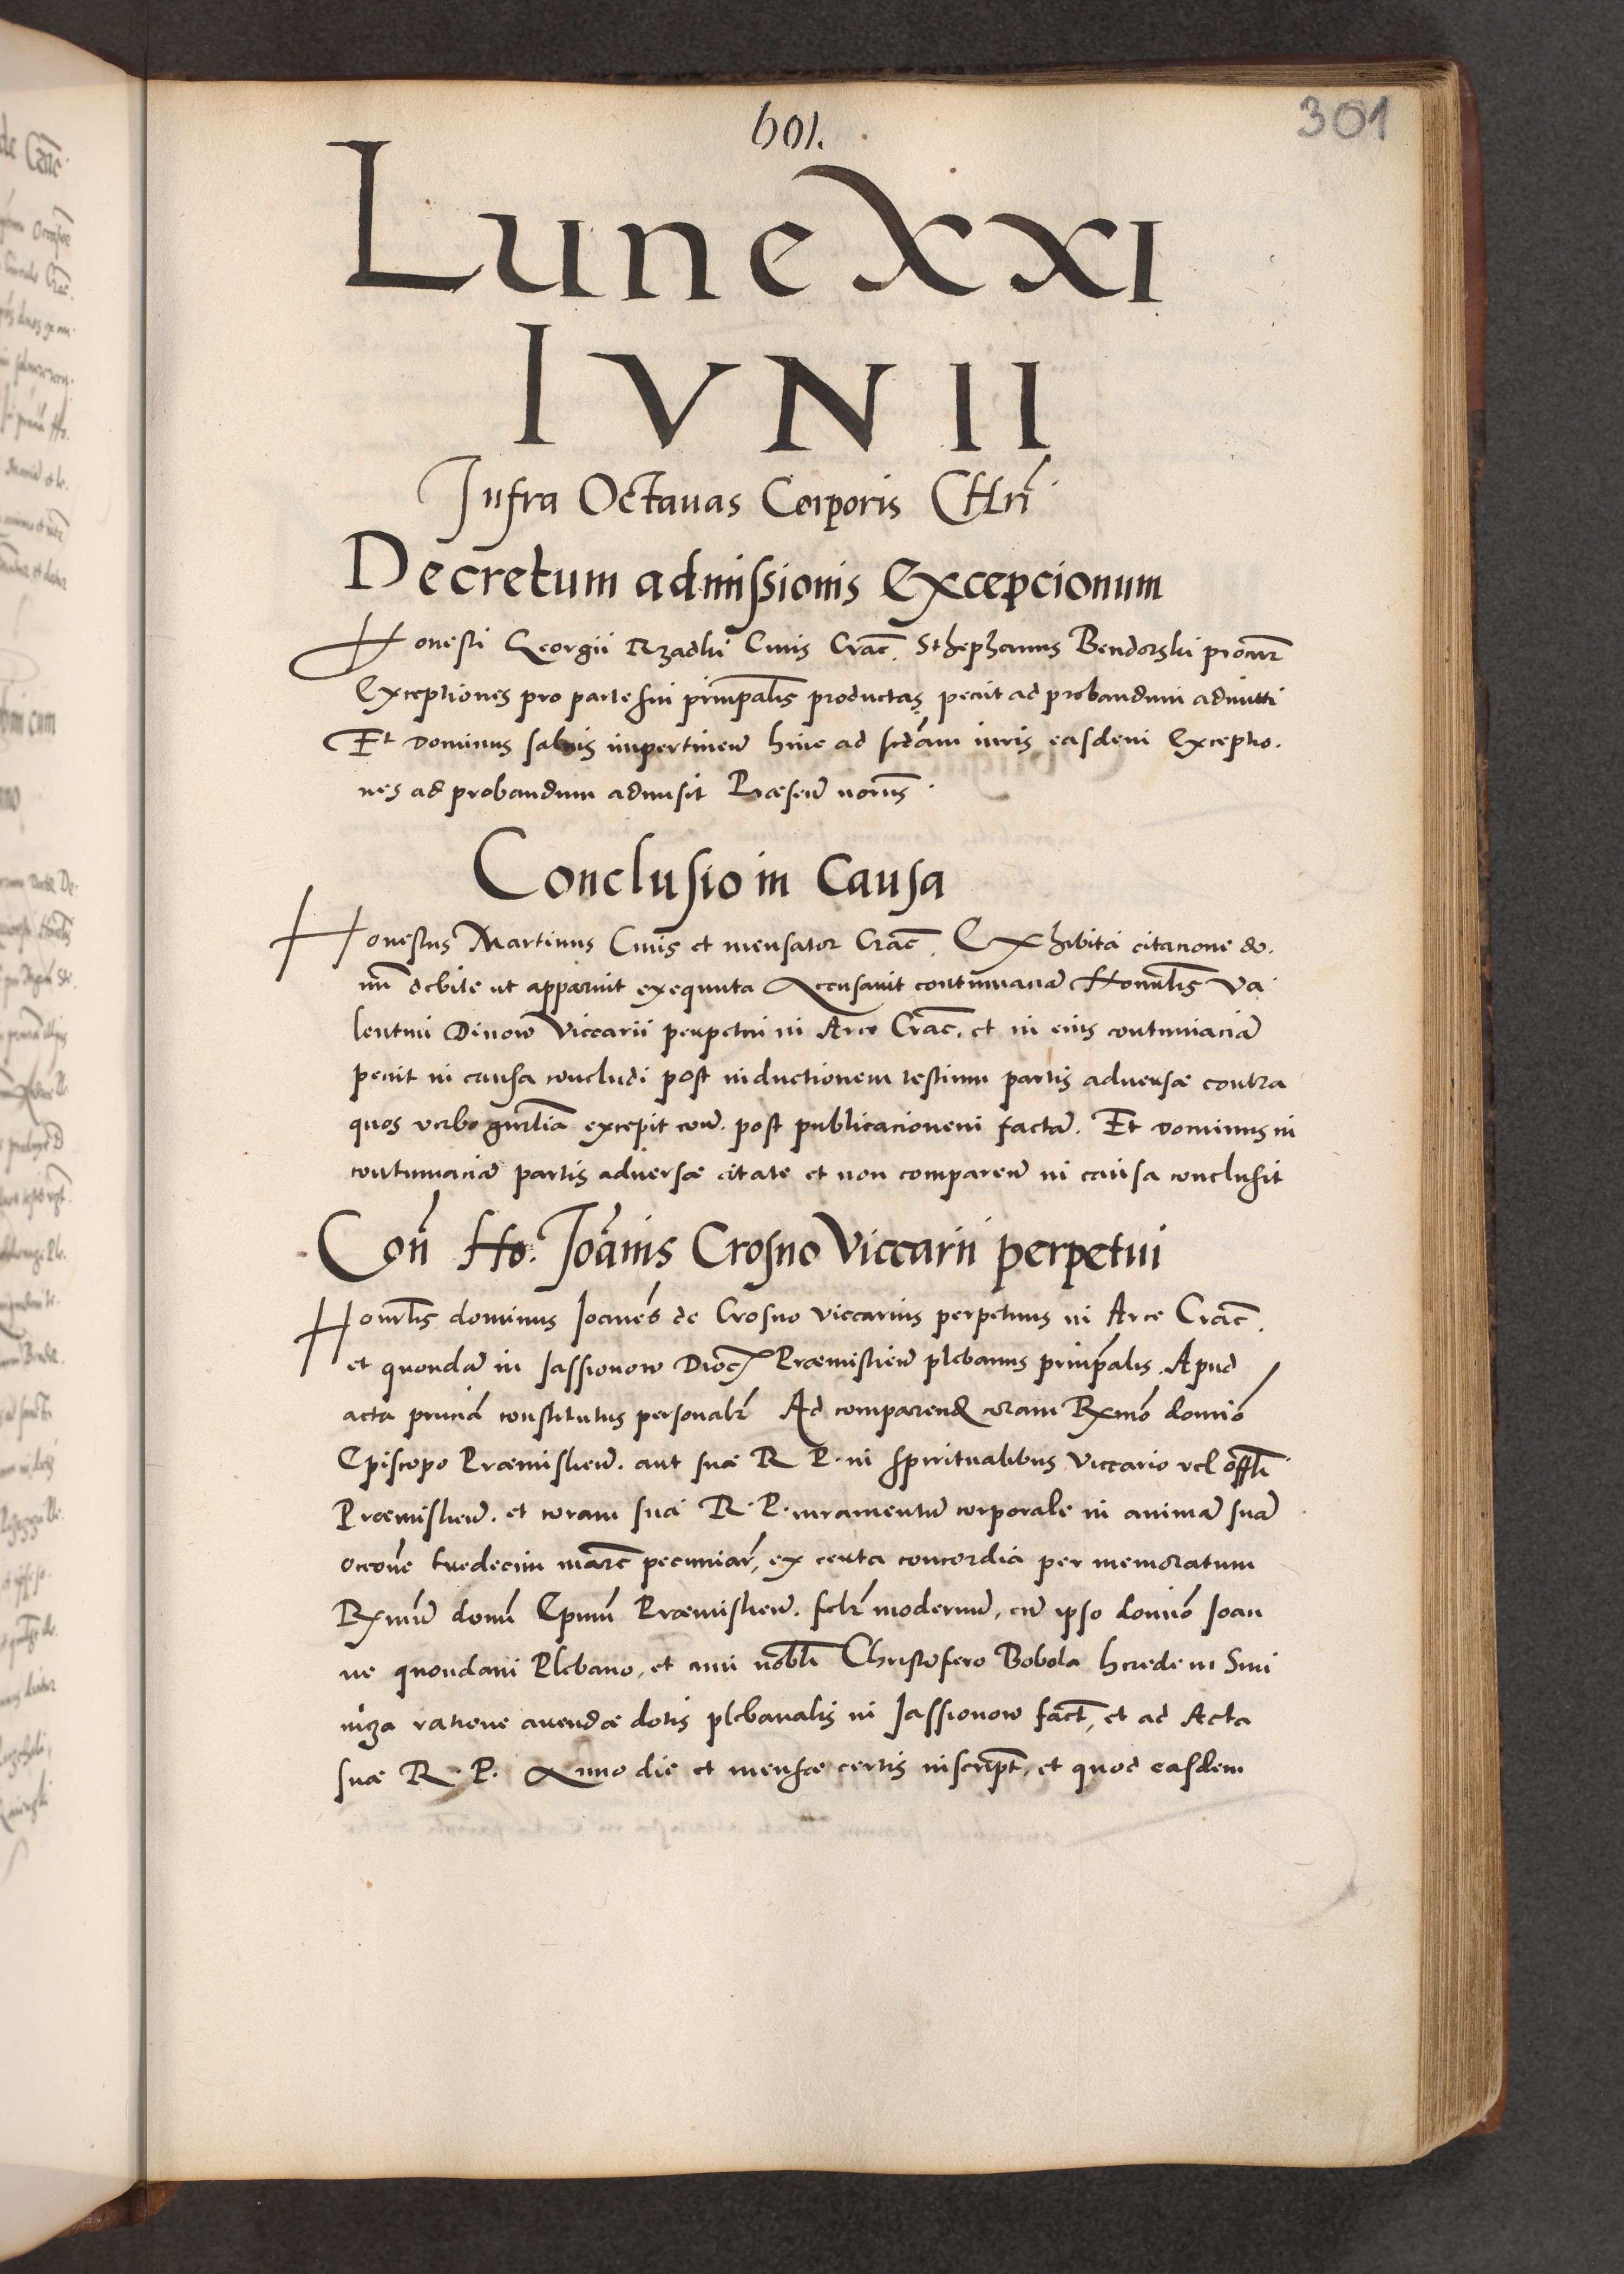 601.
301
Lune XXI
IVNII
Infra Octauas Corporis CHri
Decretum admissionis Excepcionum
Honesti Georgii Rzadki Ciuis Crac. Sthephanus Bendorski procur
Exceptiones pro parte sui principalis productas peciit ad probandum admitti
Et Dominus saluis impertinen hinc ad scdam iuris easdem Exceptio.
nes ad probandum admisit Præsen
Conclusio in Causa
Honestus Martinus Ciuis et mensator Crac. Exhibita citacione do.
mi debite ut apparuit exequuta Accusauit contumaciam Honorabilis Va
lentini Dinow Viccarii perpetui in Arce Crac. et in eius contumaciã
peciit in causa concludi post inductionem testium partis aduersæ contra
quos verbo gnrliã excepit coñ. post publicacionem factã. Et Dominus in
contumaciã partis aduersæ citate et non comparen in causa conclusit
Con Ho. Joãnis Crosno Viccarii perpetui
Honrlis dominus Joannes de Crosno viccarius perpetuus in Arce Crac.
et quondã in Jassionow Dioc Præmislien plebanus principalis. Apud
acta pñcia constitutus personalr Ad comparend coram Rxmo domio
Episcopo Præmislien. aut suæ R P. in spiritualibus viccario vel offli
Præmislien. et coram sua R. P. iuramentũ corporale in animã suã
occõne tredecim marc pecuniar, ex certa concordia per memoratum
Rxmũ domũ Epum Præmislien. felr modernũ, cũ ipso domio Joan
ne quondam Plebano, et cum nobli Christofero Bobola herede in Smi
niga ratione auendæ dotis plebanalis in Jassionow fact, et ad Acta
suæ R. P. Anno die et mense certis inscript, et quod easdem